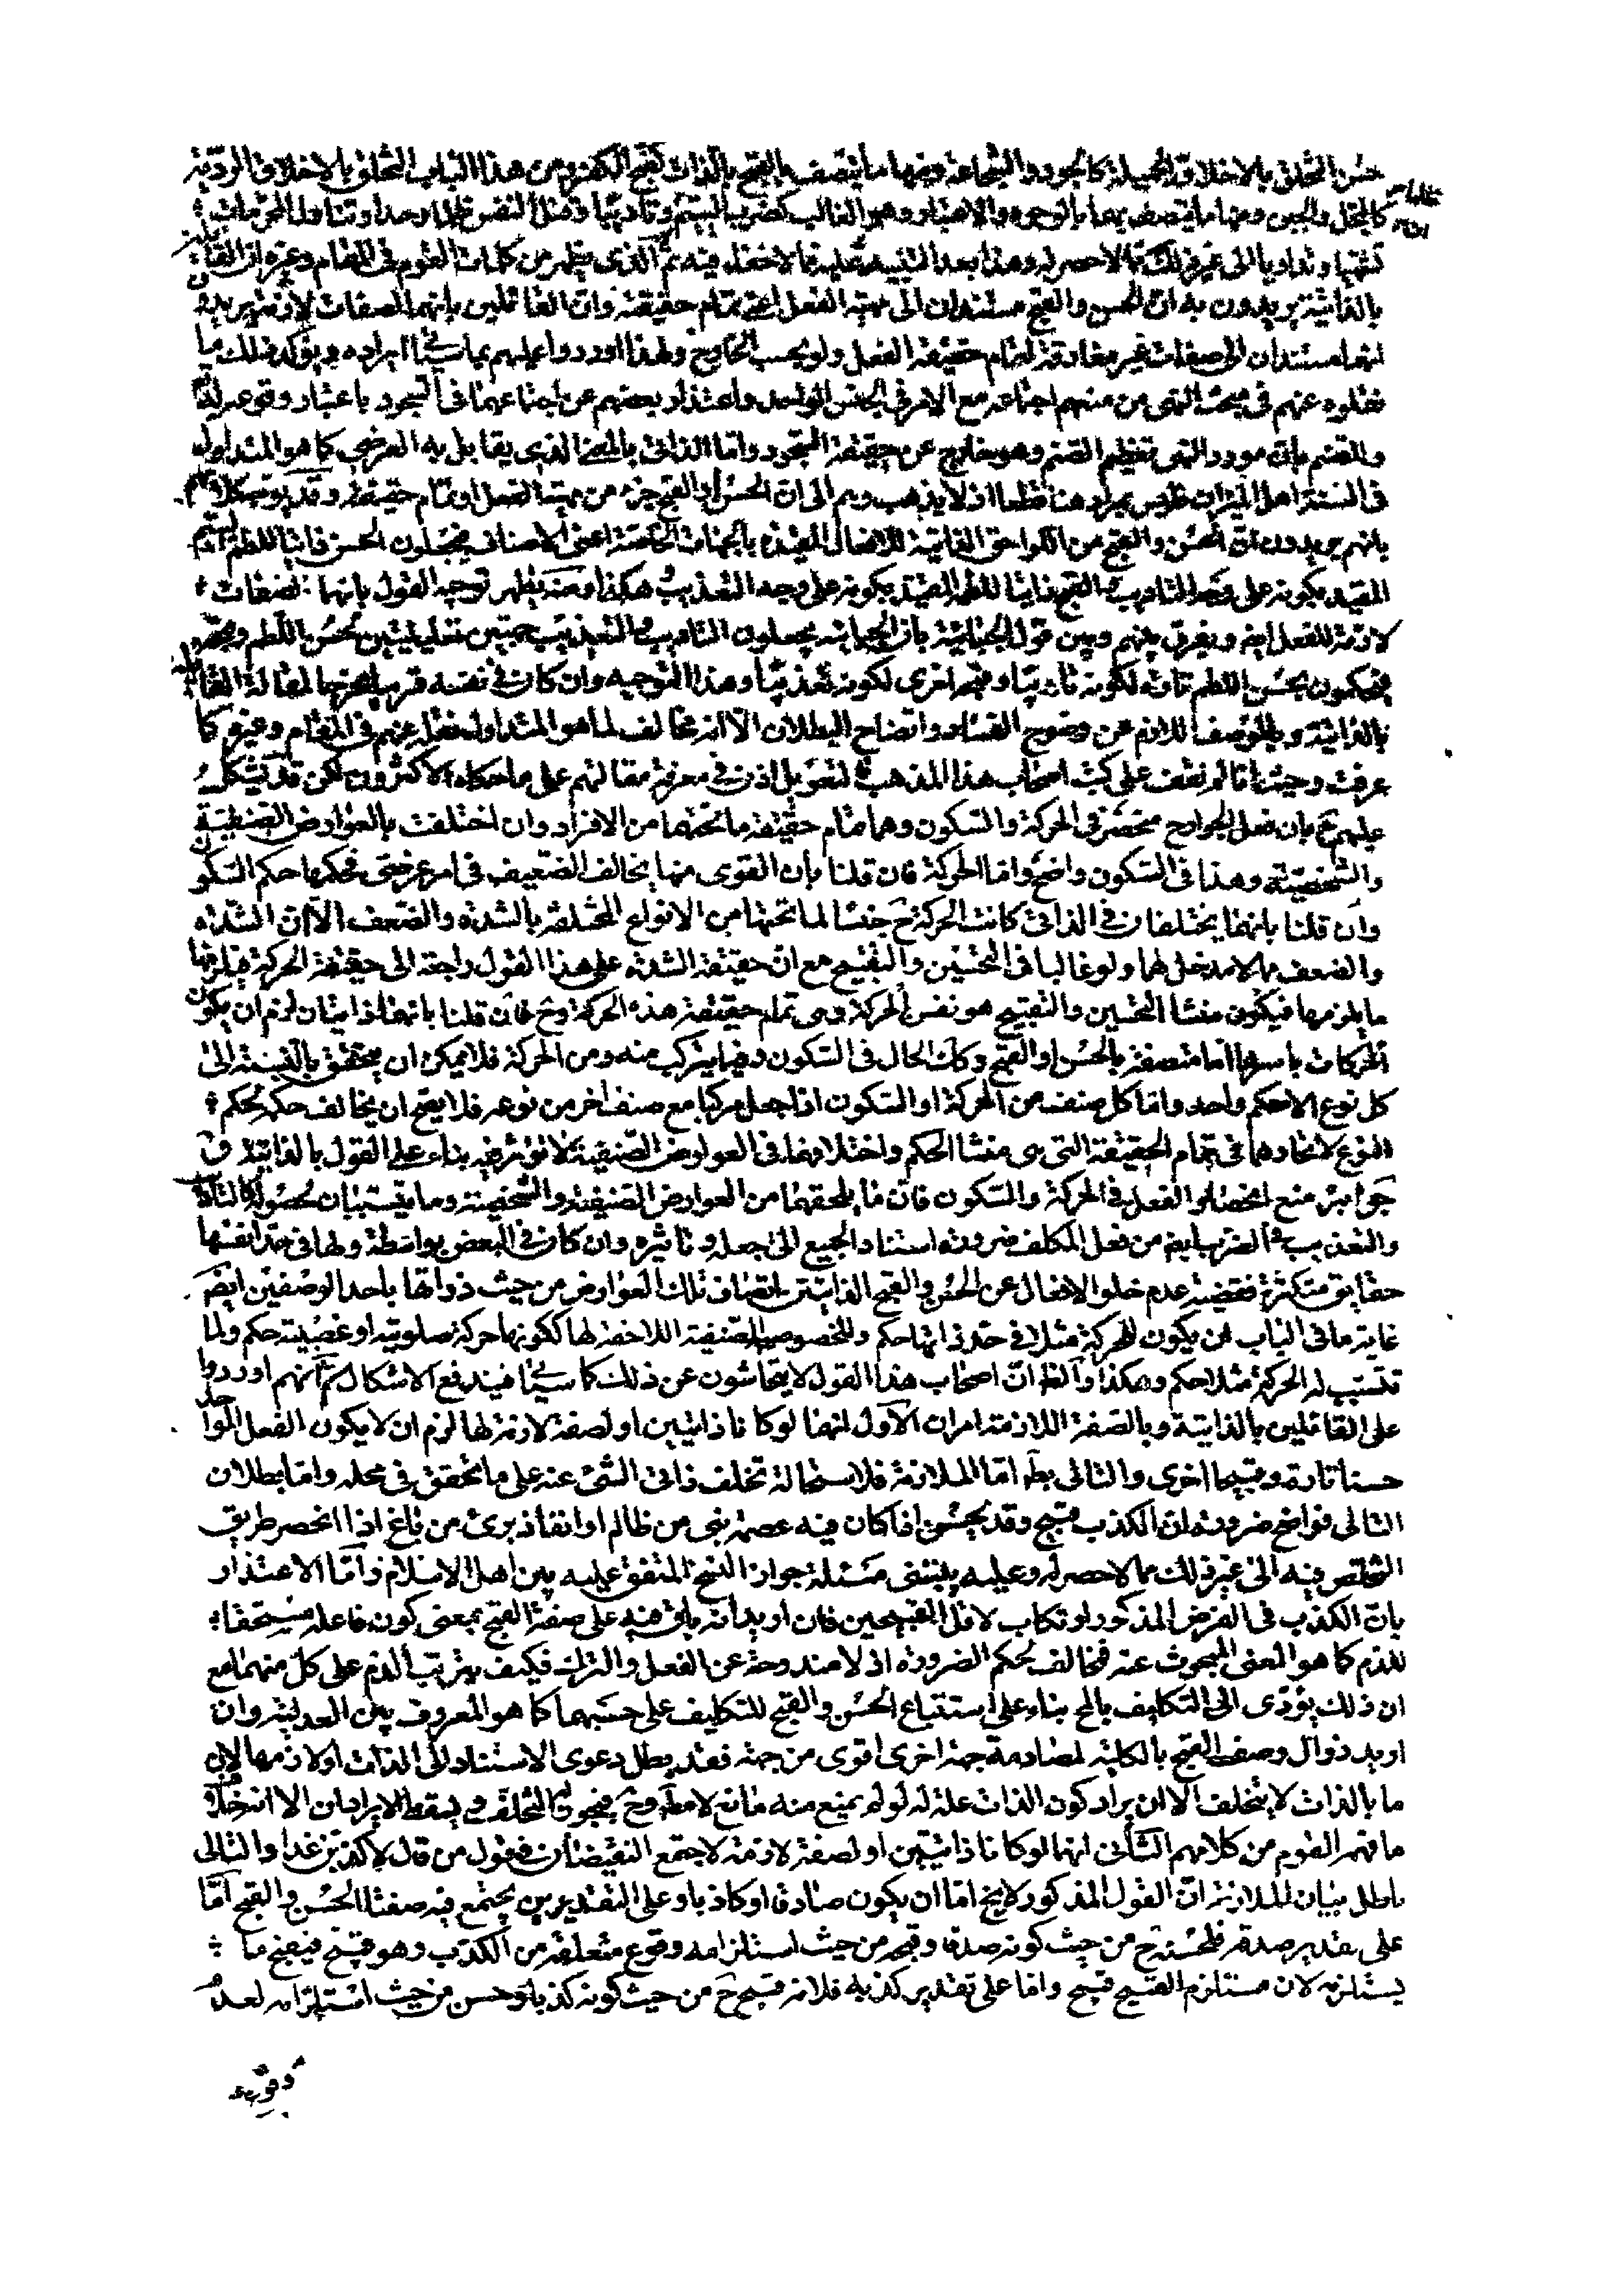 حسن التخلق بالاخلاق الجميلة كالجود والشجاعة ومنها ما يتصف بالقبح بالذات كقبح الكفر ومن هذا الباب التخلق بالاخلاق الرديّة
كالبخل والجبن ومنها ما يتصف بهما بالوجوه والاعتبار وهو الغالب كضرب اليتيم تاديبا وقتل النفس ظلما وحدا وتناول المحرمات
تشهيا وتداويا الى غير ذلك مما لا حصر له وهذا بعد التنبيه عليه مما لا خفاء فيه ثم الذى يظهر من كلمات القوم فى المقام وغيره ان القائلين
بالذاتية يريدون به ان الحسن والقبح مستندان الى مهية الفعل اعنى تمام حقيقته وان القائلين بانهما لصفات لازمة يريدون
انهما مستندان الى صفات غير مفارقة لتمام حقيقة الفعل ولو بحسب الخارج ولهذا اوردوا عليهم بما سيجئ ايراده ويؤكد ذلك ما
نقلوه عنهم فى مبحث النهى من منعهم اجتماعه مع الامر فى الجنس الواحد واعتذار بعضهم عن اجتماعهما فى السجود باعتبار وقوعه لله
والصنم بان مورد النهى تعظيم الصنم وهو خارج عن حقيقة السجود واما الذاتى بالمعنى الذى يقابل به العرضى كما هو المتداول
فى السنة اهل الميزان فليس بمراد هنا قطعا اذ لا يذهب وهم الى ان الحسن او القبح جزء من مهية الفعل او تمام حقيقته وقد يوجه كلامهم
بانهم يريدون ان الحسن والقبح من اللواحق الذاتية للافعال المقيدة بالجهات الخاصة اعنى الاصناف فيجعلون الحسن ذاتيا للطم اليتيم
المقيد بكونه على وجه التاديب والقبح ذاتيا للطم المقيد بكونه على وجه التعذيب وهكذا ومنه يظهر توجيه القول بانهما لصفات
لازمة للفعل ايضا ويفرق بينهم وبين قول الجبائية بان الجبائية يجعلون التاديب والتعذيب جهتين تعليليتين لحسن اللطم وقبحه
فيحكمون بحسن اللطم تارة لكونه تاديبا وقبحه اخرى لكونه تعذيبا وهذا التوجيه وان كان فى نفسه قريبا لمخرجها لمقالة القائلين
بالذاتية وبالوصف اللازم عن وضوح الفساد واتضاح البطلان الا انه مخالف لما هو المتداول نقله عنهم فى المقام وغيره كما
عرفت وحيث انا لم نقف على كتب اصحاب هذا المذهب فالتعويل اذن فى معرفة مقالتهم على ما حكاه الاكثرون لكن قد يشكل
عليهم ح بان فعل الجوارح منحصر فى الحركة والسكون وهما تمام حقيقة ما تحتهما من الافراد وان اختلفت بالعوارض الصنفية
والشخصية وهذا فى السكون واضح واما الحركة فان قلنا بان القوى منها يخالف الضعيف فى امر عرضى فحكمها حكم السكون
وان قلنا بانهما يختلفان فى الذاتى كانت الحركة ح جنسا لما تحتها من الانواع المختلفة بالشدة والضعف الا ان الشدة
والضعف مما لا مدخل لهما ولو غالبا فى التحسين والتقبيح مع ان حقيقة الشدة على هذا القول راجعة الى حقيقة الحركة فيلزمها
ما يلزمها فيكون منشا التحسين والتقبيح هو نفس الحركة وهى تمام حقيقة هذه الحركة وح فان قلنا بانهما ذاتيتان لزم ان يكون
الحركات باسرها اما متصفة بالحسن او القبح وكذلك الحال فى السكون وفيما يتركب منه ومن الحركة فلا يمكن ان يتحقق بالنسبة الى
كل نوع الا حكم واحد واما كل صنف من الحركة او السكون اذا جعل مركبا مع صنف اخر من نوعه فلا يصح ان يخالف حكمه لحكم
النوع لاتحادهما فى تمام الحقيقة التى هى منشا الحكم واختلافهما فى العوارض الصنفية لا يؤثر فيه بناء على القول بالذاتية و
جوابه منع انحصار الفعل فى الحركة والسكون فان ما يلحقهما من العوارض الصنفية والشخصية وما يتسببان لحصوله كالتاديب
والتعذيب والضرب ايضا من فعل المكلف ضرورة استناد الجميع الى جعله وتاثيره وان كان فى البعض بواسطة ولها فى حد انفسها
حقايق متكثرة فقضية عدم خلو الافعال عن الحسن والقبح الذاتيين اتصاف تلك العوارض من حيث ذواتها باحد الوصفين ايضا
غاية ما فى الباب ان يكون للحركة مثلا فى حد ذاتها حكم وللخصوصية الصنفية اللاحقة لها ككونها حركة صلوتية او غصبية حكم ولما
تتسبب له الحركة مثلا حكم وهكذا والظ ان اصحاب هذا القول لا يتحاشون عن ذلك كما سيجئ فيندفع الاشكال ثم انهم اوردوا
على القائلين بالذاتية وبالصفة اللازمة امران الاول انهما لو كانا ذاتيين او لصفة لازمة لها لزم ان لا يكون الفعل الواحد
حسنا تارة وقبيحا اخرى والتالى بط اما الملازمة فلاستحالة تخلف ذاتى الشئ عنه على ما تحقق فى محله واما بطلان
التالى فواضح ضرورة ان الكذب قبيح وقد يحسن اذا كان فيه عصمة نبى من ظالم او انقاذ برئ من باغ اذا انحصر طريق
التخلص فيه الى غير ذلك مما لا حصر له وعليه يبتنى مسئلة جواز النسخ المتفق عليه بين اهل الاسلام واما الاعتذار
بان الكذب فى الفرض المذكور ارتكاب لاقل القبيحين فان اريد انه باق فيه على صفة القبح بمعنى كون فاعله مستحقا
للذم كما هو المعنى المبحوث عنه فمخالف لحكم الضرورة اذ لا مندوحة عن الفعل والترك فكيف يترتب الذم على كل منهما مع
ان ذلك يؤدى الى التكليف بالمح بناء على استتباع الحسن والقبح للتكليف على حسبهما كما هو المعروف بين العدلية وان
اريد زوال وصف القبح بالكلية لمصادمة جهة اخرى اقوى من جهته فقد بطل دعوى الاستناد الى الذات او لازمها لان
ما بالذات لا يتخلف الا ان يراد كون الذات علة له لو لم يمنع منه مانع لا مط وح فيجوز التخلف ويسقط الايرادان الا انه خلاف
ما فهم القوم من كلامهم الثانى انهما لو كانا ذاتيتين او لصفة لازمة لاجتمع النقيضان فى قول من قال لاكذبن غدا والتالى
باطل بيان الملازمة ان القول المذكور لا يخ اما ان يكون صادقا او كاذبا وعلى التقديرين يجتمع فيه صفتا الحسن والقبح اما
على تقدير صدقه فلحسنه ح من حيث كونه صدقا وقبحه من حيث استلزامه وقوع متعلقه من الكذب وهو قبيح فيقبح ما
يستلزمه لان مستلزم القبيح قبيح واما على تقدير كذبه فلانه قبيح ح من حيث كونه كذبا وحسن من حيث استلزامه لعدم
وقوع